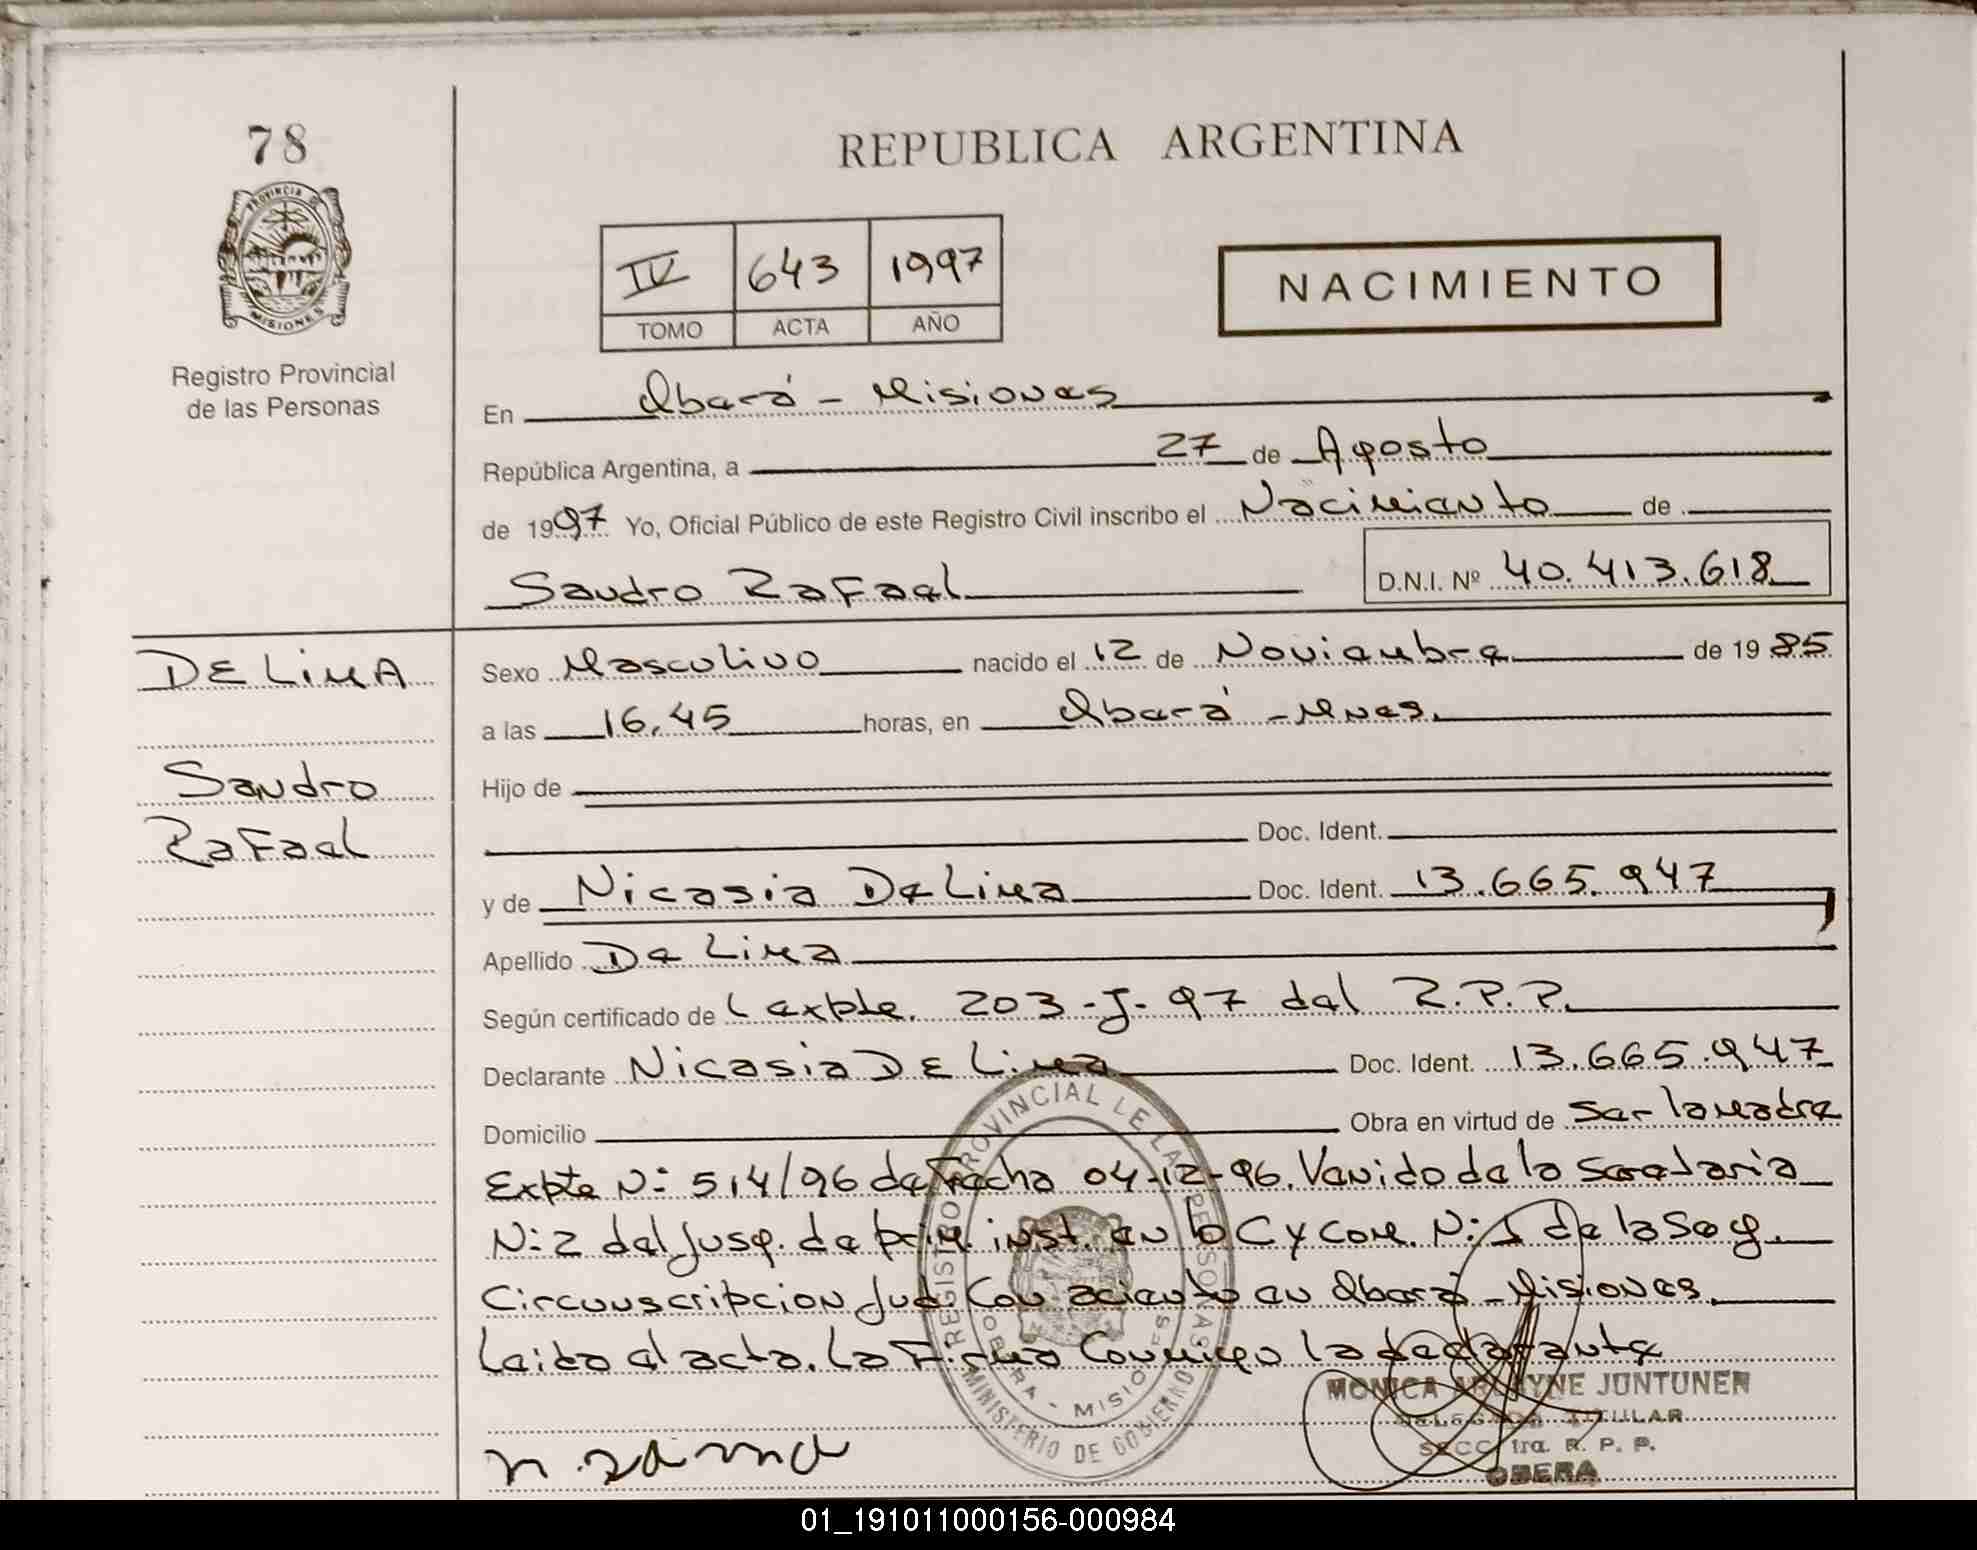 78
PROVINCIA DE
MISIONES
Registro Provincial
de las Personas
REPUBLICA ARGENTINA
IV 643 1997
TOMO ACTA AÑO
NACIMIENTO
En Oberá - Misiones
República Argentina, a 27 de Agosto
de 1997 Yo, Oficial Público de este Registro Civil inscribo el Nacimiento de
Sandro Rafael D.N.I. Nº 40.413.618
DE LIMA
Sandro
Rafael
Sexo Masculino nacido el 12 de Noviembre de 1985
a las 16,45 horas, en Oberá - Mnes.
Hijo de
Doc. Ident.
y de Nicasia De Lima Doc. Ident. 13.665.947
Apellido De Lima
Según certificado de expte. 203-J-97 del R.P.P.
Declarante Nicasia De Lima Doc. Ident. 13.665.947
Domicilio Obra en virtud de ser la madre
Expte N: 514/96 de Fecha 04-12-96. Venido de la Secretaria
N: 2 del Jusg. de prim. inst. en lo C y Com. N: 1 de la Seg.
Circunscripcion Jud. Con aciento en Oberá - Misiones.
Leida el acta. La Firma Conmigo la declarante
REGISTRO PROVINCIAL DE LAS PERSONAS
MINISTERIO DE GOBIERNO
OBERA - MISIONES
MONICA JUNTUNEN
DELEGADA TITULAR
SECC. 1ra. R. P. P.
OBERA
01_191011000156-000984